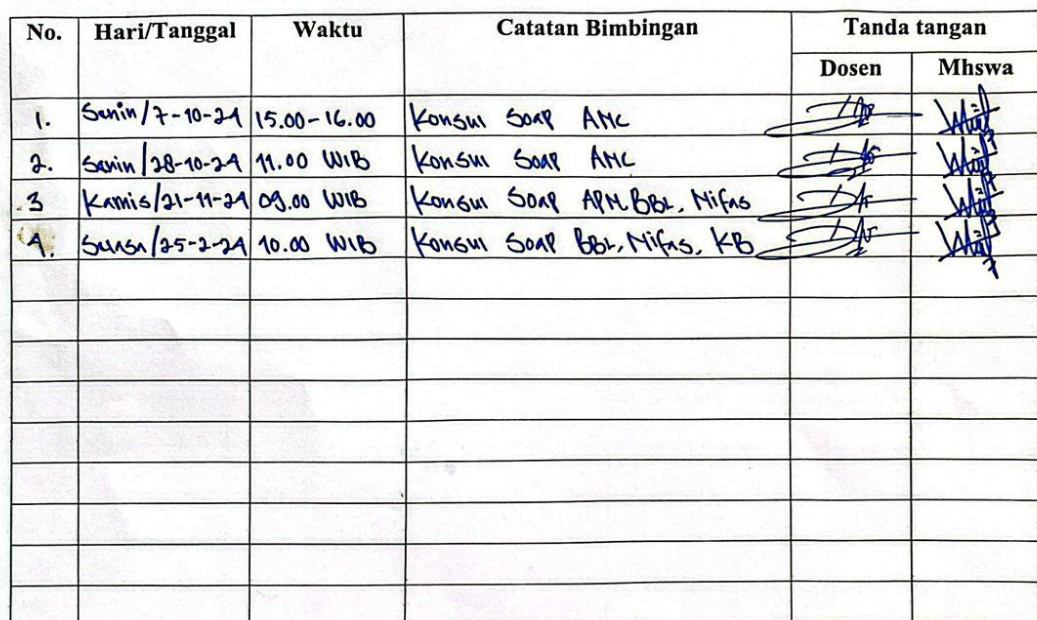 No. Hari/Tanggal Waktu Catatan Bimbingan Tanda tangan
Dosen Mhswa
1. Senin/7-10-24 15.00-16.00 Konsul Soap ANC
2. Senin/28-10-24 11.00 WIB Konsul Soap ANC
3 Kamis/21-11-24 09.00 WIB Konsul Soap APN, BBL, Nifas
4. Selasa/25-2-24 10.00 WIB Konsul Soap BBL, Nifas, KB